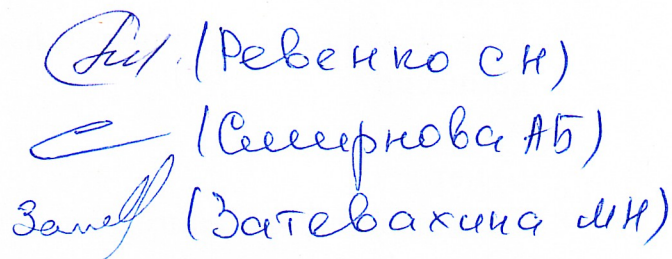 (Ревенко СН)
(Смирнова АБ)
Зат (Затевахина МН)